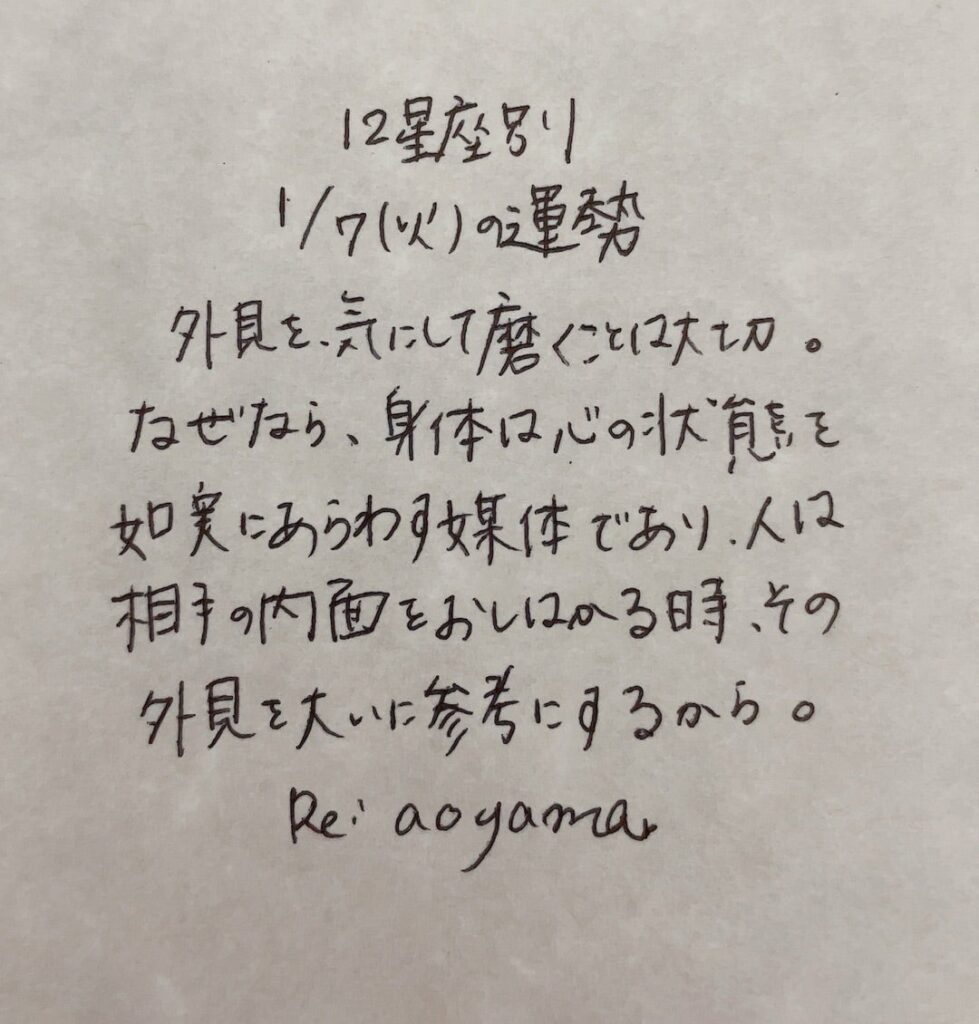 12星座別
1/7(火)の運勢
外見を、気にして磨くことは大切。
なぜなら、身体は心の状態を
如実にあらわす媒体であり、人は
相手の内面をおしはかる時、その
外見を大いに参考にするから。
Rei aoyama